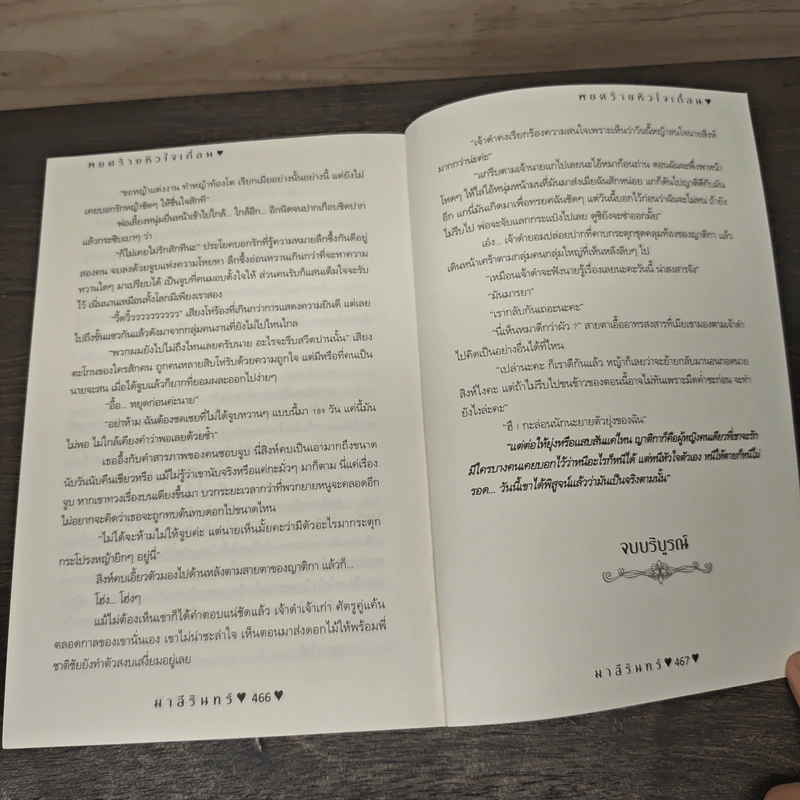 พยศร้ายหัวใจเถื่อน♥
"ขอหญ้าแต่งงาน ทำหญ้าท้องโต เรียกเมียอย่างนั้นอย่างนี้ แต่ยังไม่
เคยบอกรักหญ้าชัดๆ ให้ชื่นใจสักที"
พ่อเลี้ยงหนุ่มยื่นหน้าเข้าไปใกล้.. ใกล้อีก... อีกนิดจนปากเกือบชิดปาก
แล้วกระซิบเบาๆ ว่า
"ก็ไม่เคยไม่รักสักทีนะ" ประโยคบอกรักที่รู้ความหมายลึกซึ้งกันดีอยู่
สองคน จบลงด้วยจูบแห่งความโหยหา ลึกซึ้งอ่อนหวานเกินกว่าที่จะหาความ
หวานใดๆ มาเปรียบได้ เป็นจูบที่คนมอบตั้งใจให้ ส่วนคนรับก็แสนเต็มใจจะรับ
ไว้ เนิ่นนานเหมือนทั้งโลกมีเพียงเราสอง
"วี้ดวิ้ววววววววว" เสียงโห่ร้องที่เกินกว่าการแสดงความยินดี แต่เลย
ไปถึงขั้นแซวกันแล้วดังมาจากกลุ่มคนงานที่ยังไม่ไปไหนไกล
"พวกผมยังไปไม่ถึงไหนเลยครับนาย อะไรจะรีบสวีตปานนั้น" เสียง
ตะโกนของใครสักคน ถูกคนหลายสิบโห่รับด้วยความถูกใจ แต่มีหรือที่คนเป็น
นายจะสน เมื่อได้จูบแล้วก็ยากที่ยอมผละออกไปง่ายๆ
"อื้อ... หยุดก่อนค่ะนาย"
"อย่าห้าม ฉันต้องชดเชยที่ไม่ได้จูบหวานๆ แบบนี้มา 189 วัน แค่นี้มัน
ไม่พอ ไม่ใกล้เคียงคำว่าพอเลยด้วยซ้ำ"
เธออึ้งกับคำสารภาพของคนชอบจูบ นี่สิงห์คบเป็นเอามากถึงขนาด
นับวันนับคืนเชียวหรือ แม้ไม่รู้ว่าเขานับจริงหรือแค่กะมั่วๆ มาก็ตาม นี่แค่เรื่อง
จูบ หากเขาทวงเรื่องบนเตียงขึ้นมา บวกระยะเวลากว่าที่พวกยายหนูจะคลอดอีก
ไม่อยากจะคิดว่าเธอจะถูกทบต้นทบดอกไปขนาดไหน
"ไม่ได้จะห้ามไม่ให้จูบค่ะ แต่นายเห็นมั้ยคะว่ามีตัวอะไรมากระตุก
กระโปรงหญ้ายิกๆ อยู่นี่"
สิงห์คบเอี้ยวตัวมองไปด้านหลังตามสายตาของญาติกา แล้วก็...
โฮ่ง... โฮ่งๆ
แม้ไม่ต้องเห็นเขาก็ได้คำตอบแน่ชัดแล้ว เจ้าดำเจ้าเก่า ศัตรูคู่แค้น
ตลอดกาลของเขานั่นเอง เขาไม่น่าชะล่าใจ เห็นตอนมาส่งดอกไม้ให้พร้อมพี่
ชาติชัยยังทำตัวสงบเสงี่ยมอยู่เลย
มาลีรินทร์♥ 466 ♥
พยศร้ายหัวใจเถื่อน♥
"เจ้าดำคงเรียกร้องความสนใจเพราะเห็นว่าวันนี้หญ้าสนใจนายสิงห์
มากกว่าน่ะค่ะ"
"แกรีบตามเจ้านายแกไปเลยนะไอ้หมาก้อนถ่าน ตอนฉันจะพึ่งพาหน้า
โหดๆ ให้ไล่ไอ้หนุ่มหน้ามนที่มันมาส่งเมียฉันสักหน่อย แกก็ดันไปญาติดีกับมัน
อีก แกนี่มันเกิดมาเพื่อทรยศฉันชัดๆ แต่วันนี้บอกไว้ก่อนว่าฉันจะไม่ทน ถ้ายัง
ไม่รีบไป พ่อจะจับแลกกระแป๋งไปเลย ดูซิยังจะซ่าออกมั้ย"
เอ๋ง... เจ้าดำยอมปล่อยปากที่คาบกระตุกชุดคลุมท้องของญาติกา แล้ว
เดินหน้าเศร้าตามกลุ่มคนกลุ่มใหญ่ที่เห็นหลังลิบๆ ไป
"เหมือนเจ้าดำจะฟังนายรู้เรื่องเลยนะคะวันนี้ น่าสงสารจัง"
"มันมารยา"
"เรากลับกันเถอะนะคะ"
"นี่เห็นหมาดีกว่าผัว ?" สายตาเอื้ออาทรสงสารที่เมียเขามองตามเจ้าดำ
ไปคิดเป็นอย่างอื่นได้ที่ไหน
"เปล่านะคะ ก็เราดีกันแล้ว หญ้าก็เลยว่าจะย้ายกลับมานอนกอดนาย
สิงห์ไงคะ แต่ถ้าไม่รีบไปขนข้าวของตอนนี้อาจไม่ทันเพราะมืดค่ำซะก่อน จะทำ
ยังไงล่ะคะ"
"ฮึ ! กะล่อนนักนะยายตัวยุ่งของฉัน"
"แต่ต่อให้ยุ่งหรือแสบสันแค่ไหน ญาติกาก็คือผู้หญิงคนเดียวที่เขาจะรัก
มีใครบางคนเคยบอกไว้ว่าหนีอะไรก็หนีได้ แต่หนีหัวใจตัวเอง หนีให้ตายก็หนีไม่
รอด... วันนี้เขาได้พิสูจน์แล้วว่ามันเป็นจริงตามนั้น"
จบบริบูรณ์
มาลีรินทร์♥ 467♥